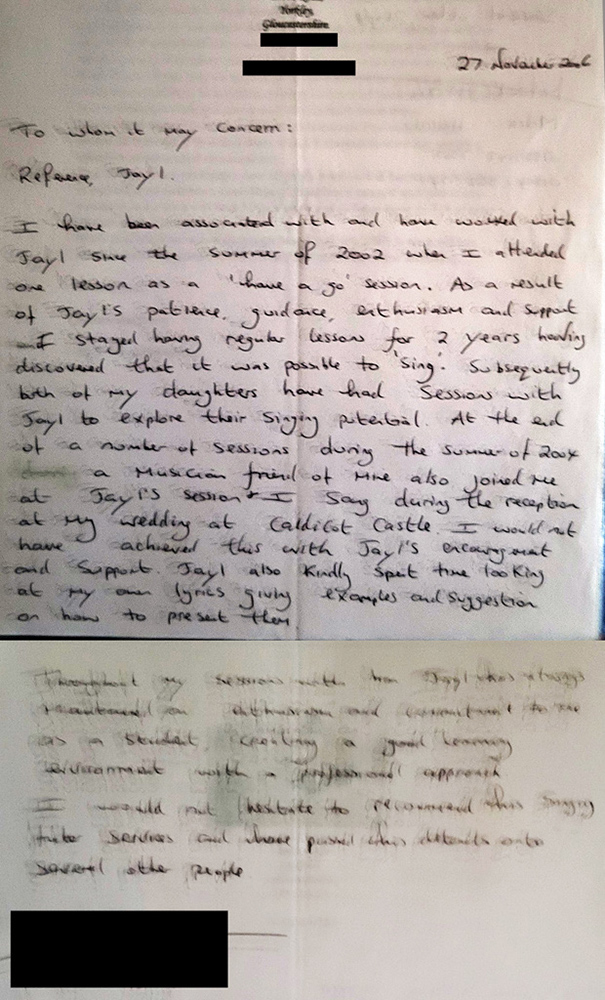 Yorkley,
Gloucestershire
27 November 2006
To whom it may concern:
Reference, Jayl.
I have been associated with and have worked with
Jayl since the summer of 2002 when I attended
one lesson as a 'have a go' session. As a result
of Jayl's patience, guidance, enthusiasm and support
I stayed having regular lessons for 2 years having
discovered that it was possible to 'sing'. Subsequently
both of my daughters have had sessions with
Jayl to explore their singing potential. At the end
of a number of sessions during the summer of 2004
a musician friend of mine also joined me
at Jayl's session & I sang during the reception
at my wedding at Caldicot Castle. I would not
have achieved this with Jayl's encouragement
and support. Jayl also kindly spent time looking
at my own lyrics giving examples and suggestion
on how to present them.
Throughout my sessions with him Jayl has always
maintained an enthusiasm and commitment to me
as a student, creating a good learning
environment with a professional approach
I would not hesitate to recommend his singing
tutor services and have passed his details onto
several other people